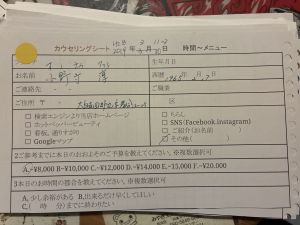 カウンセリングシート 時間〜メニュー
お名前 小野寺 淳
生年月日
西暦 1965 年 2 月 7 日
ご連絡先
ご職業
ご住所 〒
区
□ 検索エンジンより当店ホームページ □ ちらし
□ ホットペッパービューティ □ SNS(Facebook.instagram)
□ 看板、通りすがり □ ご紹介(お名前 )
□ Googleマップ □ その他( )
2.ご参考までに本日のおおよそのご予算を教えてください。※複数選択可
A.~¥8,000 B~¥10,000 C.~¥12,000 D~¥14,000 E.~15,000 F.~¥20.000
3.本日のお時間の都合を教えてください。※複数選択可
A.少し余裕がある B.出来るだけ早くしてほしい
C.( 時 分)までに終わりたい